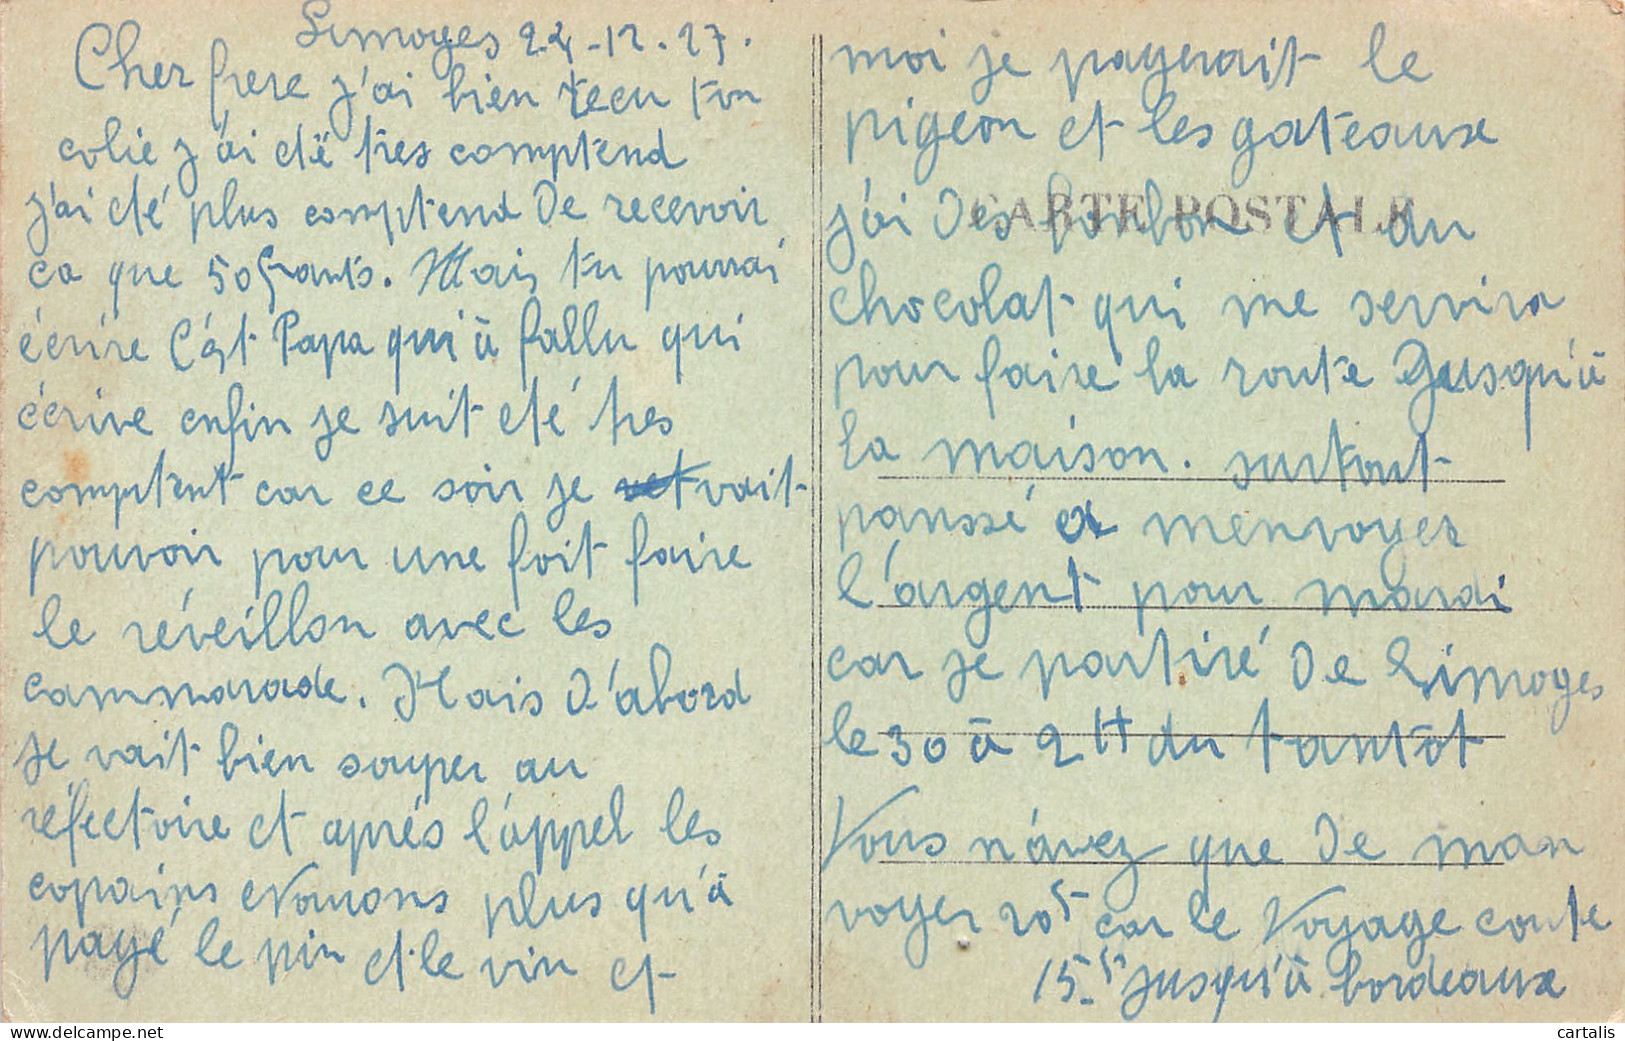 Limoges 24-12-27.
Cher frere j'ai bien recu ton
colie j'ai été tres comptend
j'ai été plus comptend de recevoir
ca que 50 frants. Mais tu pourrai
écrire C'ést Papa qui à fallu qui
écrive enfin je suit été tres
comptent car ce soir je vait
pouvoir pour une foit faire
le réveillon avec les
cammarade. Mais d'abord
je vait bien souper au
réfectoire et aprés l'appel les
copains e Nourons plus qu'à
payé le pin et le vin et
moi je payerait le
pigeon et les gateaux
CARTE POSTALE
j'ai des bonbon et du
chocolat qui me servira
pour faire la route Jusqu'à
la maison. surtout
panssé a menvoyer
l'argent pour mardi
car je partiré de Limoges
le 30 à 2H du tantôt
Vous n'avez que de man
voyer 20f car le Voyage coute
15f jusqu'à bordeaux
cartalis